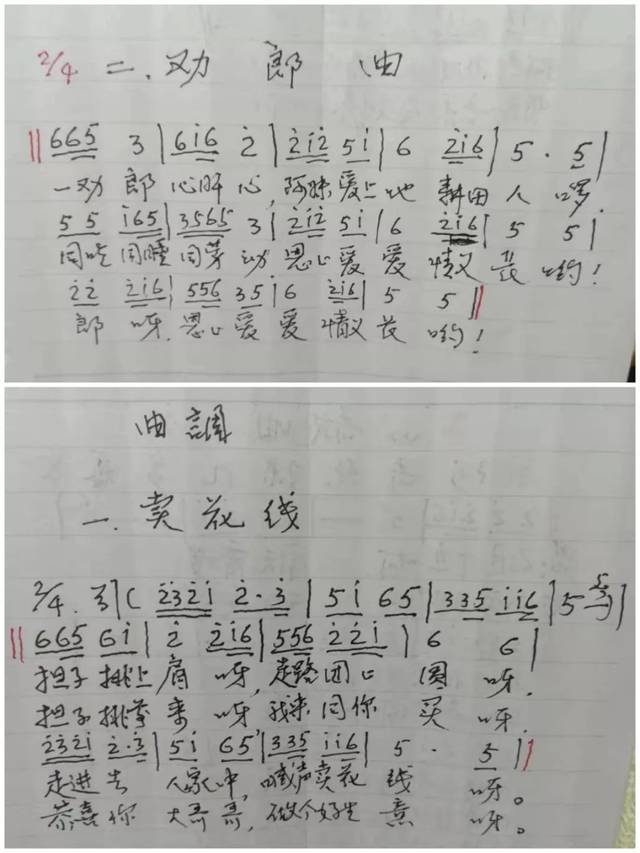 2/4 二、劝郎曲
‖ 665 3 | 6i6 2̇ | 2̇i2̇ 5i | 6 2̇i6 | 5 · 5 |
一劝郎心肝心,阿妹爱上他耕田人啰。
5 5 i65 | 3565 3 | 2̇i2̇ 5i | 6 2̇i6 | 5 5 |
同吃同睡同劳动恩心爱爱情义长哟!
2̇2̇ 2̇i6 | 556 35 | 6 2̇i6 | 5 5 ‖
郎呀,恩心爱爱情义长哟!
曲調
一、卖花线
2/4. 引 | ( 2̇3̇2̇i 2̇·3̇ | 5i 65 | 335 ii6 | 5
‖ 665 6i | 2̇ 2̇i6 | 556 2̇2̇i | 6 6 |
担子挑上肩呀,走路团团圆呀,
担子挑拿来呀,我来同你买呀,
2̇3̇2̇i 2̇·3̇ | 5i 65 | 335 ii6 | 5 · 5 ‖
走进去人家中,喊声卖花线呀。
恭喜你大哥哥,做个好生意呀。